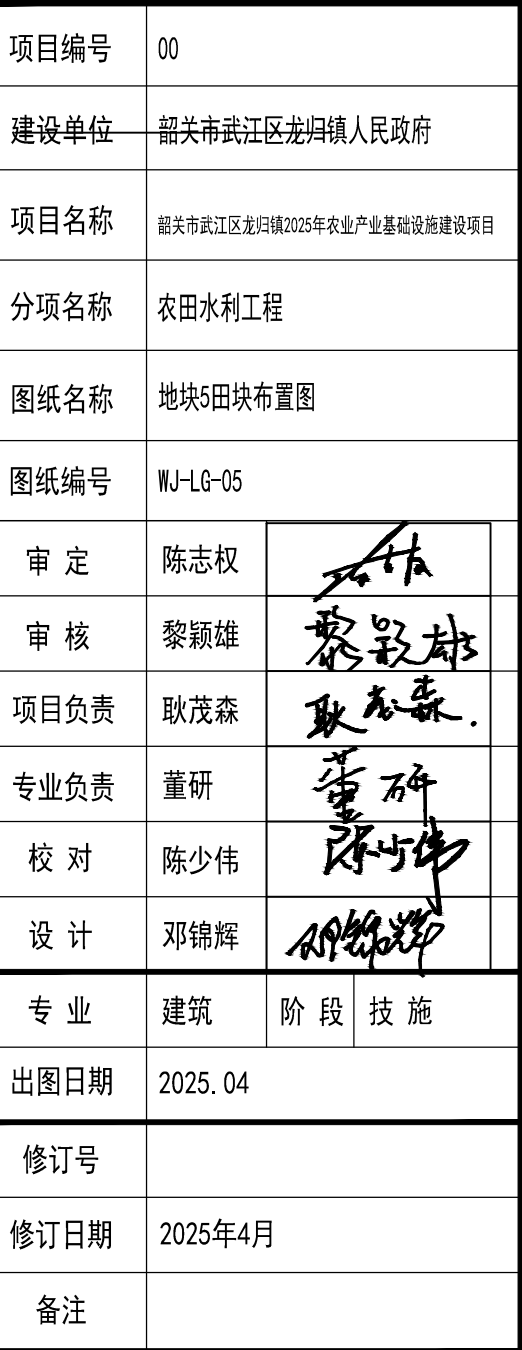 项目编号 00
建设单位 韶关市武江区龙归镇人民政府
项目名称 韶关市武江区龙归镇2025年农业产业基础设施建设项目
分项名称 农田水利工程
图纸名称 地块5田块布置图
图纸编号 WJ-LG-05
审 定 陈志权
审 核 黎颖雄 黎颖雄
项目负责 耿茂森 耿茂森.
专业负责 董研 董研
校 对 陈少伟 陈少伟
设 计 邓锦辉 邓锦辉
专 业 建筑 阶 段 技 施
出图日期 2025.04
修订号
修订日期 2025年4月
备注